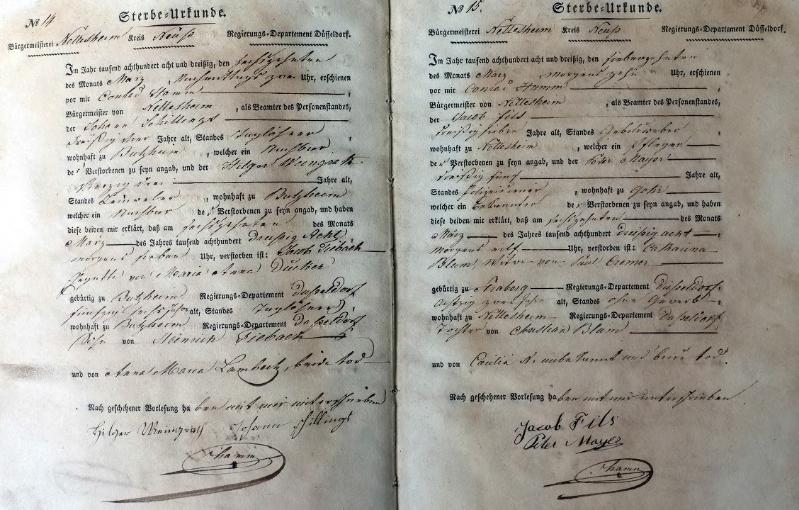 No 14
Sterbe-Urkunde.
Bürgermeisterei Nettesheim Kreis Neuß Regierungs-Departement Düsseldorf.
Im Jahr tausend achthundert acht und dreißig, den sechszehnten
des Monats März Nachmittags zwei Uhr, erschienen
vor mir Conrad Hamm
Bürgermeister von Nettesheim, als Beamter des Personenstandes,
der Johann Schillings
dreißig vier Jahre alt, Standes Taglöhner
wohnhaft zu Butzheim, welcher ein Nachbar
des Verstorbenen zu seyn angab, und der Hilger
vierzig drei Jahre alt,
Standes Leinweber, wohnhaft zu Butzheim
welcher ein Nachbar des Verstorbenen zu seyn angab, und haben
diese beiden mir erklärt, daß am sechszehnten des Monats
März des Jahres tausend achthundert dreißig Acht
morgens sieben Uhr, verstorben ist: Jacob
von Maria Anna
gebürtig zu Butzheim Regierungs-Departement Dusseldorf
fünfzig sechs Jahre alt, Standes Taglöhner
wohnhaft zu Butzheim Regierungs-Departement Dusseldorf
Sohn von Heinrich
und von Anna Maria Lambertz, beide tod
Nach geschehener Vorlesung haben mit mir unterschrieben
Hilger Johann Schillings
Hamm
No 15.
Sterbe-Urkunde.
Bürgermeisterei Nettesheim Kreis Neuß Regierungs-Departement Düsseldorf.
Im Jahr tausend achthundert acht und dreißig, den siebenzehnten
des Monats März morgens zehn Uhr, erschienen
vor mir Conrad Hamm
Bürgermeister von Nettesheim, als Beamter des Personenstandes,
der Jacob Fils
dreißig sieben Jahre alt, Standes
wohnhaft zu Nettesheim, welcher ein
der Verstorbenen zu seyn angab, und der Peter Mayer
dreißig fünf Jahre alt,
Standes Polizeidiener, wohnhaft zu Gohr
welcher ein Bekannter der Verstorbenen zu seyn angab, und haben
diese beiden mir erklärt, daß am sechszehnten des Monats
März des Jahres tausend achthundert dreißig acht
morgens elf Uhr, verstorben ist: Catharina
Blam, Witwe von Paul Cremer
gebürtig zu Regierungs-Departement Dusseldorf
Jahre alt, Standes ohne Gewerb
wohnhaft zu Nettesheim Regierungs-Departement Dusseldorf
Tochter von Christian Blam
und von Cecilia N. unbekannt und beide tod.
Nach geschehener Vorlesung haben mit mir unterschrieben.
Jacob Fils
Peter Mayer
Hamm